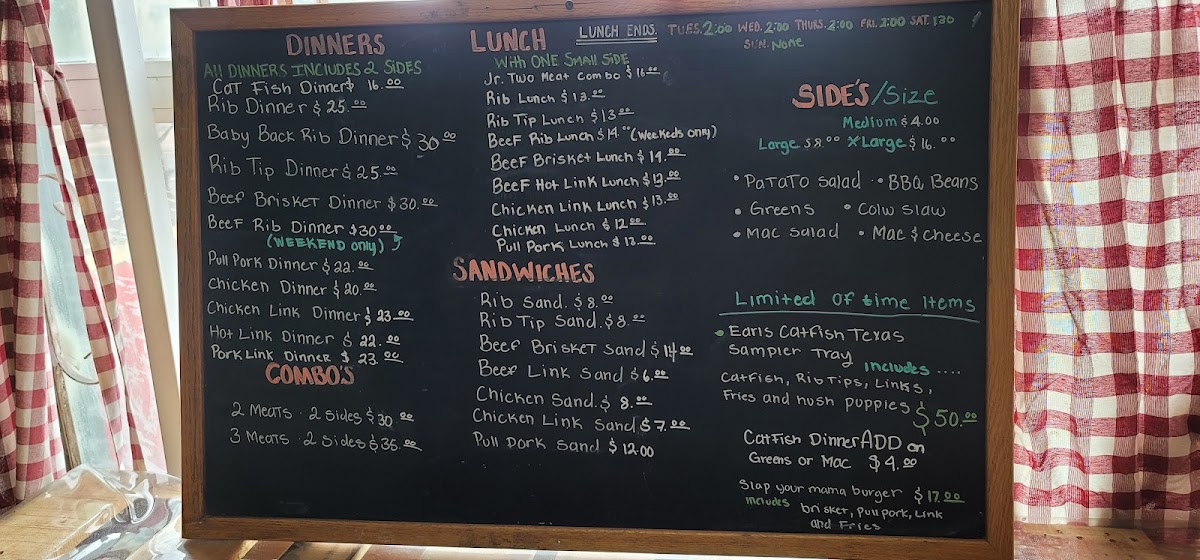 DINNERS
All DINNERS INCLUDES 2 SIDES
Cat Fish Dinner $ 16.00
Rib Dinner $ 25.00
Baby Back Rib Dinner $ 30.00
Rib Tip Dinner $ 25.00
Beef Brisket Dinner $ 30.00
Beef Rib Dinner $30.00
(WEEKEND only)
Pull Pork Dinner $ 22.00
Chicken Dinner $ 20.00
Chicken Link Dinner $ 23.00
Hot Link Dinner $ 22.00
Pork Link Dinner $ 23.00
COMBO'S
2 Meats · 2 Sides $ 30.00
3 Meats · 2 Sides $ 35.00
LUNCH
LUNCH ENDS. TUES. 2:00 WED. 2:00 THURS. 2:00 FRI. 2:00 SAT. 1:30
SUN. None
With ONE Small SIDE
Jr. Two Meat Combo $ 16.00
Rib Lunch $ 13.00
Rib Tip Lunch $ 13.00
Beef Rib Lunch $ 14.00 (Weekeds only)
Beef Brisket Lunch $ 14.00
Beef Hot Link Lunch $ 13.00
Chicken Link Lunch $ 13.00
Chicken Lunch $ 12.00
Pull Pork Lunch $ 13.00
SANDWICHES
Rib Sand. $ 8.00
Rib Tip Sand. $ 8.00
Beef Brisket Sand $ 14.00
Beef Link Sand $ 6.00
Chicken Sand. $ 8.00
Chicken Link Sand $ 7.00
Pull Pork Sand $ 12.00
SIDE'S/Size
Medium $ 4.00
Large $ 8.00 XLarge $ 16.00
• Patato Salad • BBQ Beans
• Greens • Colw Slaw
• Mac Salad • Mac $ Cheese
Limited Of time Items
• Earls Catfish Texas
Sampler Tray
includes ....
Catfish, Rib Tips, Links,
Fries and hush puppies $ 50.00
Catfish Dinner ADD on
Greens or Mac $ 4.00
Slap your mama burger $ 17.00
includes brisket, pull pork, Link
and Fries